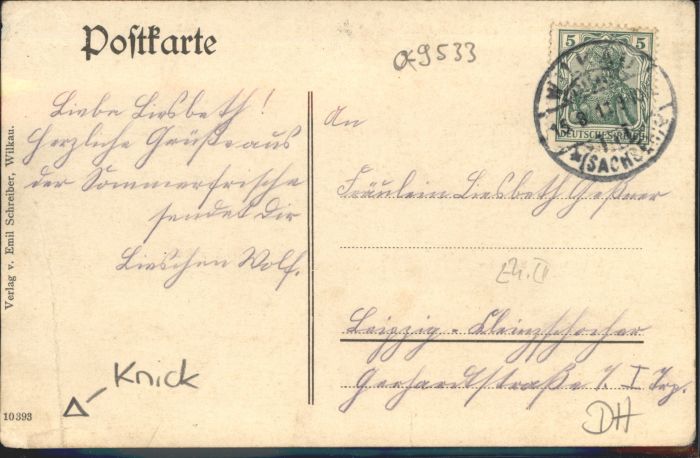 Postkarte
α9533
5 5
DEUTSCHES REICH
(SACHSEN)
Liebe Liesbeth!
Herzliche Grüße aus
der Sommerfrische
sendet Dir
Lieschen Wolf.
An
Fräulein Liesbeth Geßner
Leipzig-Kleinzschocher
Gerhardtstraße I Trp.
Verlag v. Emil Schreiber, Wilkau.
10393
Knick
DH